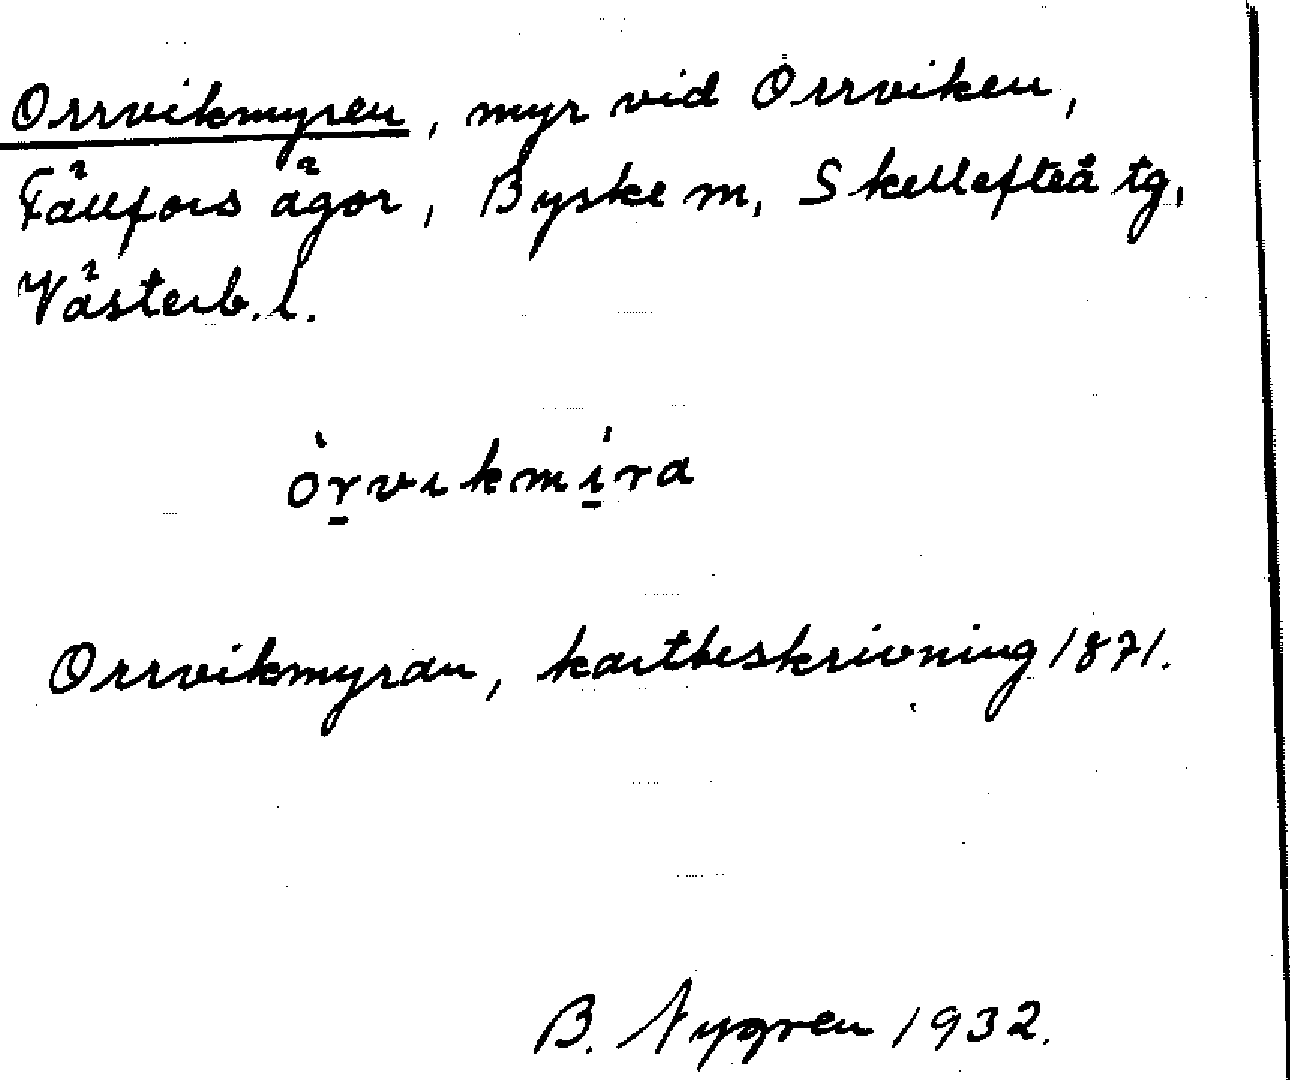 Orrvikmyren, myr vid Orrviken,
Fällfors ägor, Byske sn, Skellefteå tg,
Västerb. l.
òrvɩkmíra
Orrvikmyran, kartbeskrivning 1871.
B. Nygren 1932.